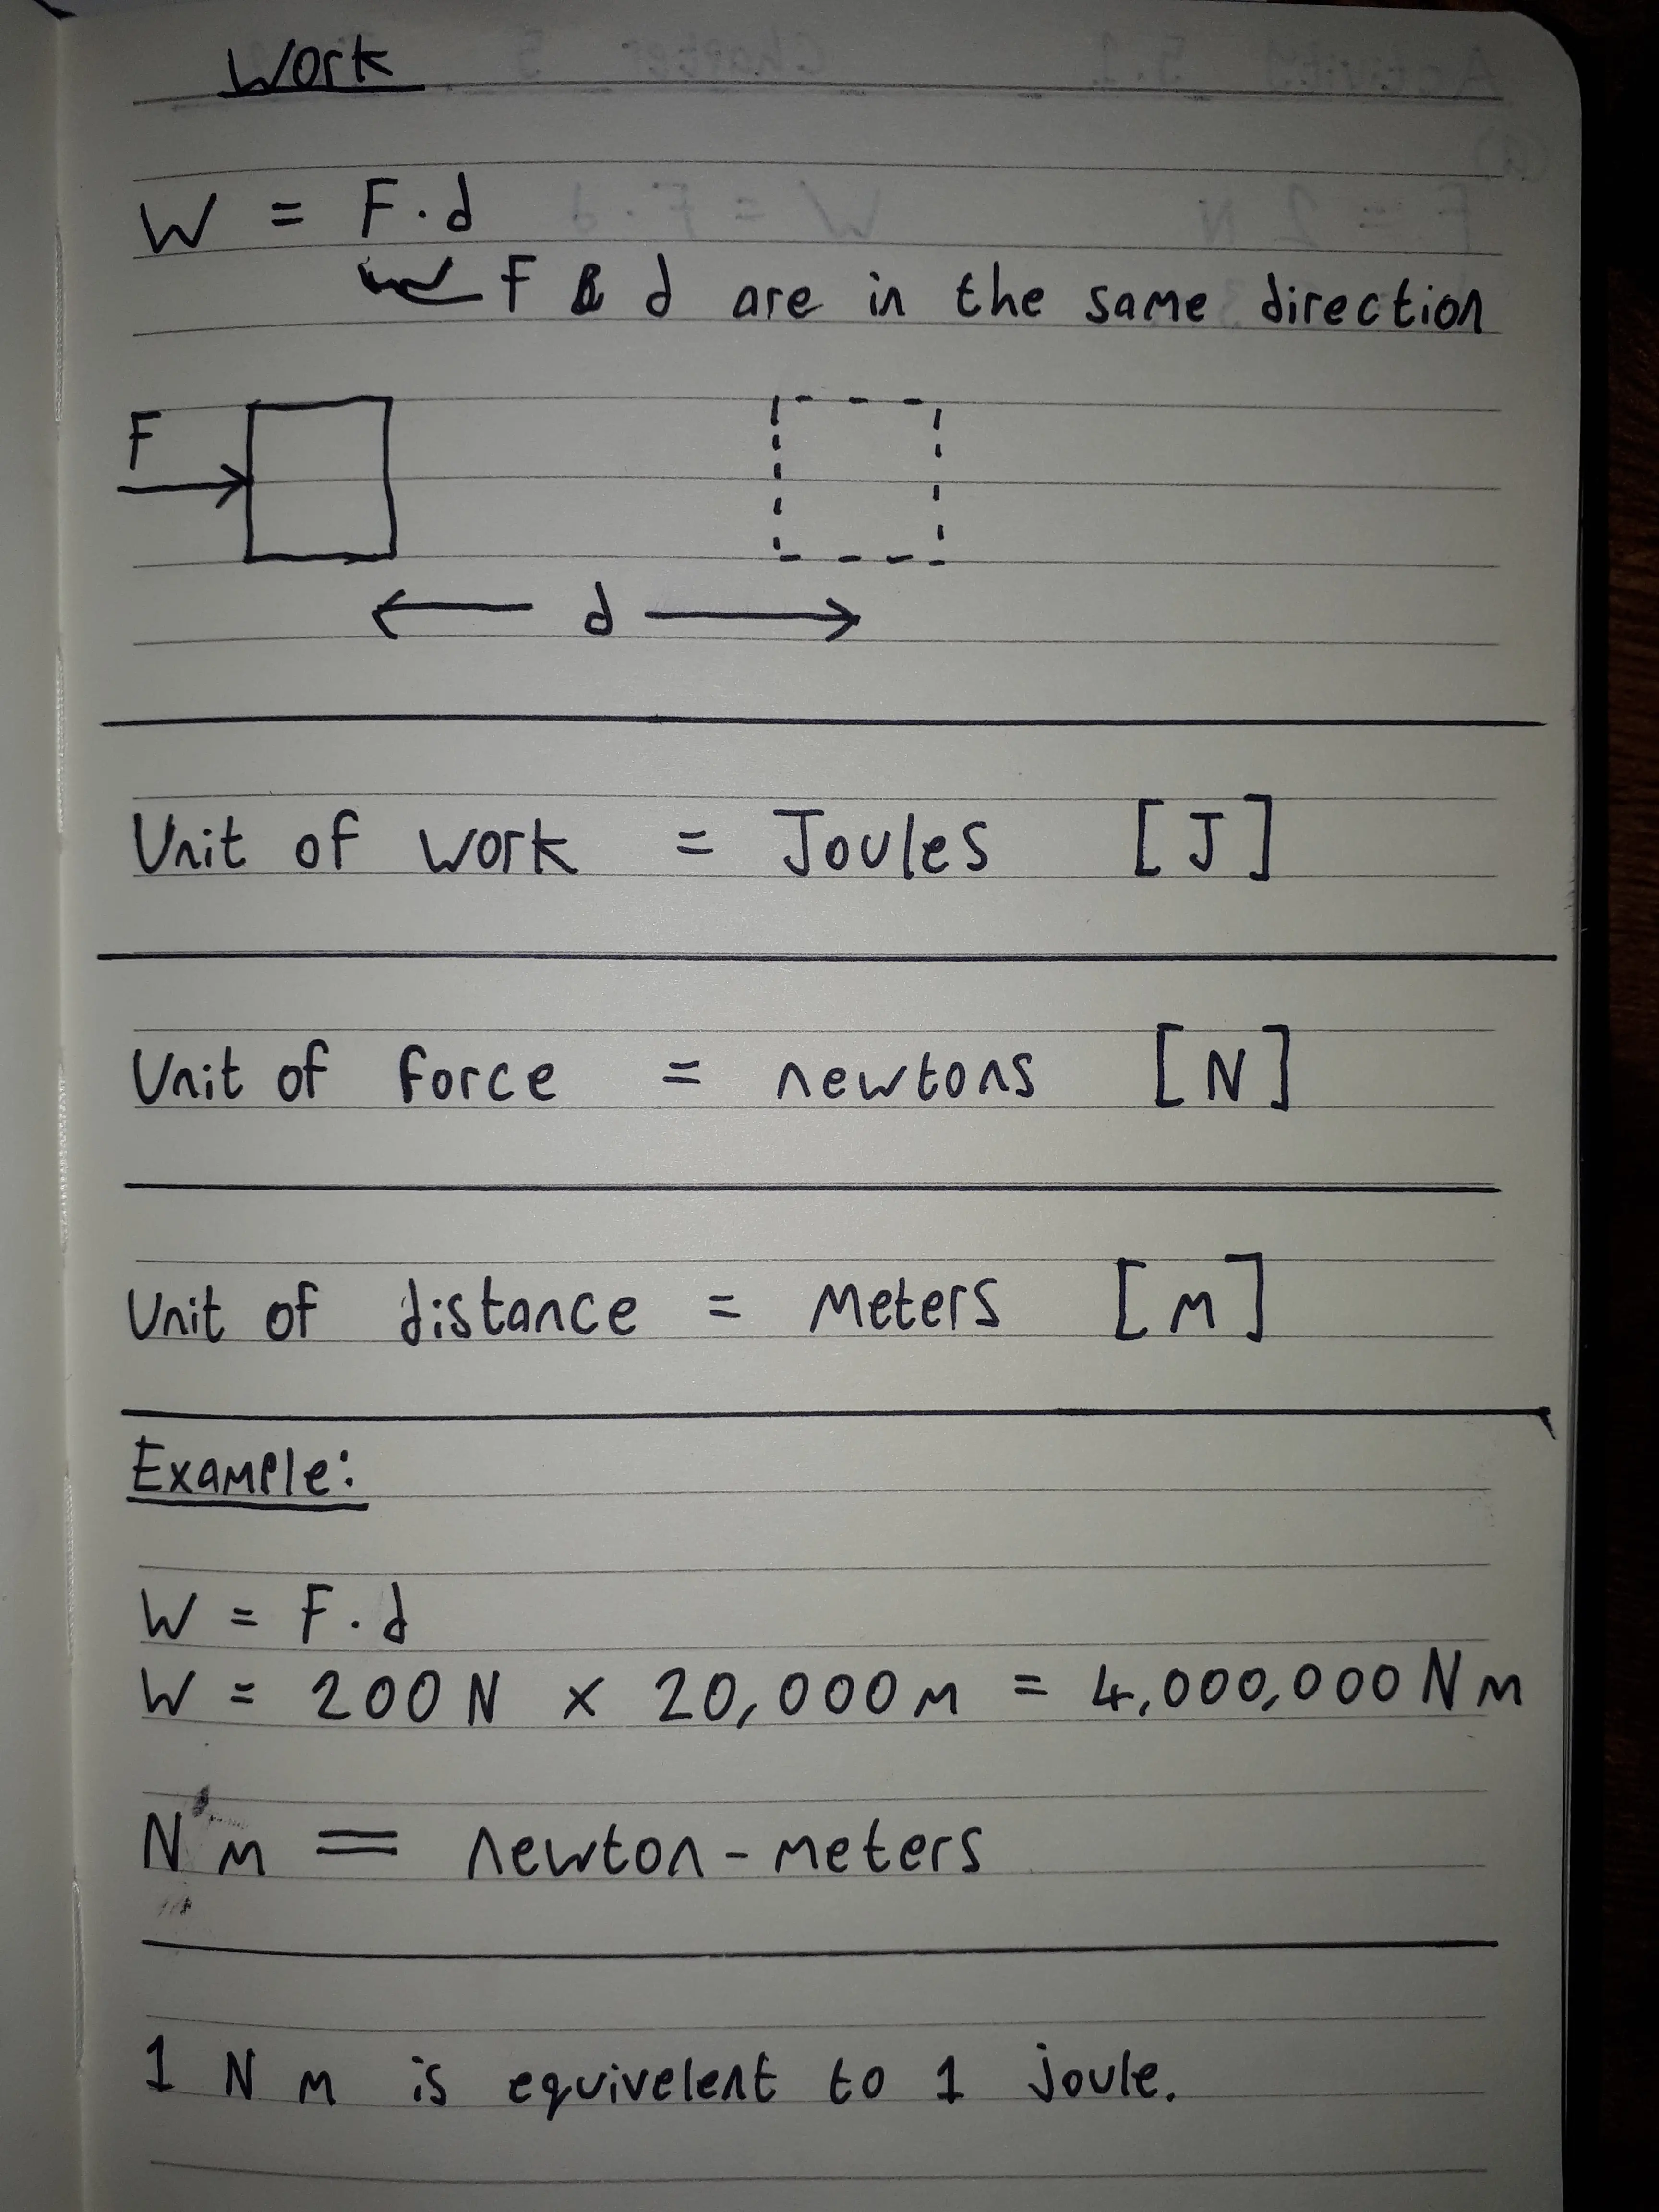 Work
W = F·d
F & d are in the same direction
F
d
Unit of work = Joules [J]
Unit of force = newtons [N]
Unit of distance = Meters [m]
Example:
W = F·d
W = 200 N x 20,000 m = 4,000,000 N m
N m = newton-meters
1 N m is equivelent to 1 joule.